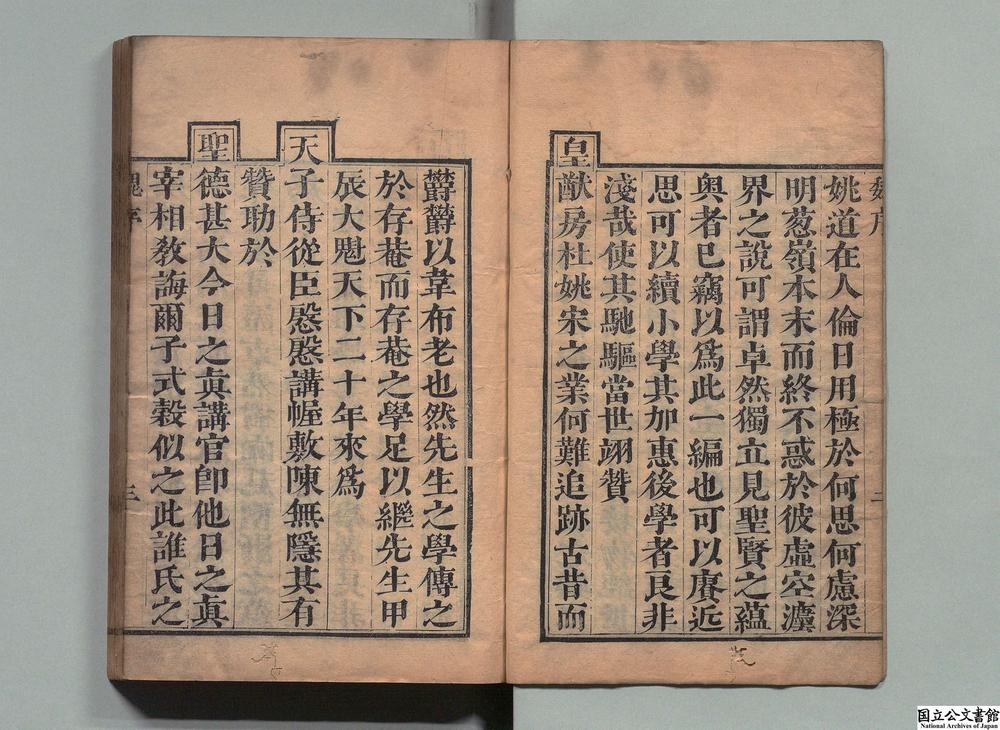 姚道在人倫日用極於何思何慮深
明葱嶺本末而終不惑於彼虛空灋
界之說可謂卓然獨立見聖賢之蘊
奧者已竊以爲此一編也可以賡近
思可以續小學其加惠後學者良非
淺哉使其馳驅當世翊贊
皇猷房杜姚宋之業何難追跡古昔而
欝欝以韋布老也然先生之學傳之
於存菴而存菴之學足以繼先生甲
辰大魁天下二十年來爲
天子侍從臣慇慇講幄敷陳無隱其有
贊助於
聖德甚大今日之眞講官卽他日之眞
宰相敎誨爾子式榖似之此誰氏之
三
国立公文書館
National Archives of Japan